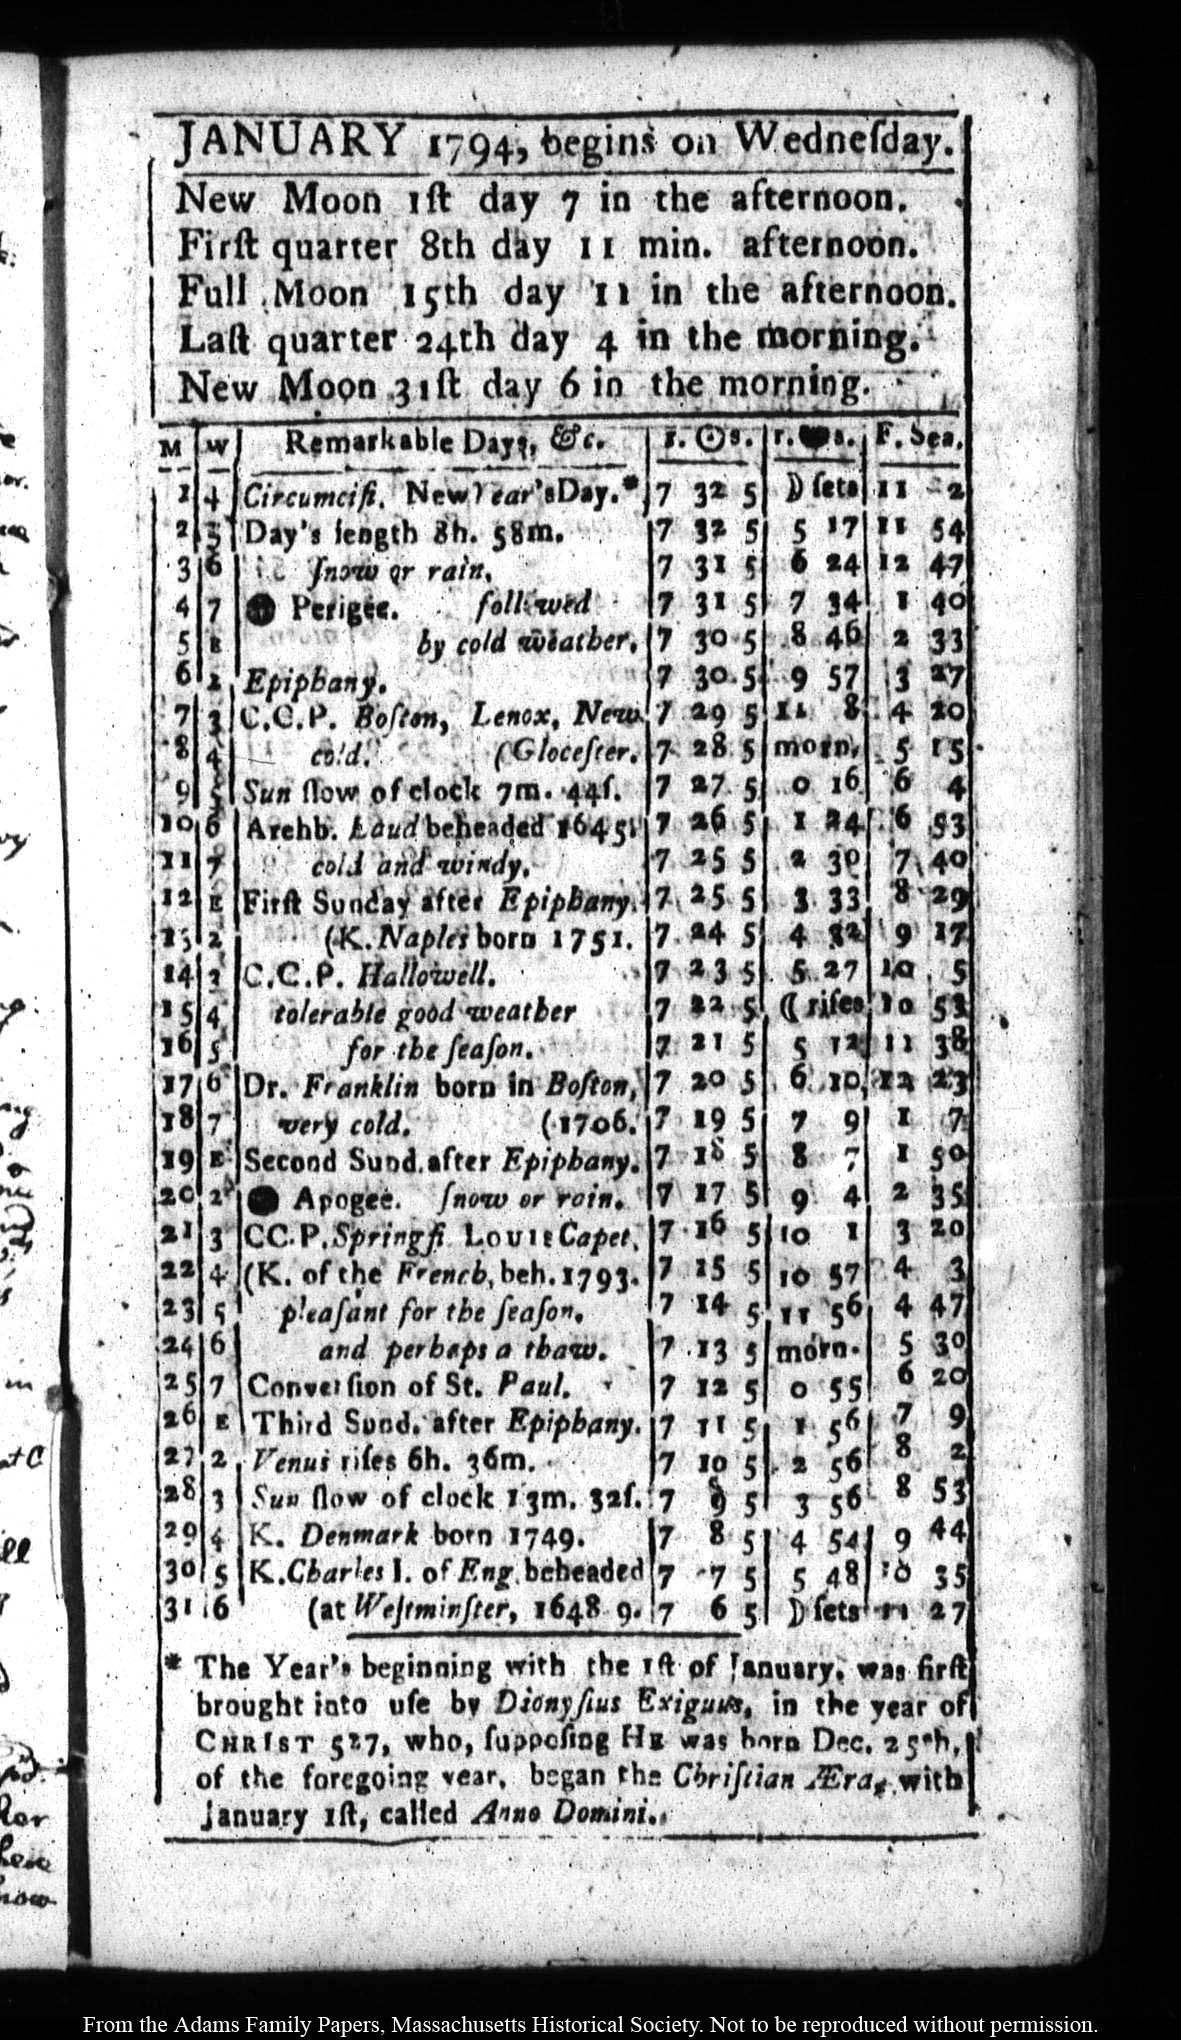 JANUARY 1794, begins on Wedneſday.
New Moon 1ſt day 7 in the afternoon.
Firſt quarter 8th day 11 min. afternoon.
Full Moon 15th day 11 in the afternoon.
Laſt quarter 24th day 4 in the morning.
New Moon 31ſt day 6 in the morning.
M W Remarkable Days, &c. r. ☉ s. r. s. F. Sea.
1 4 Circumciſi. New Year'sDay.* 7 32 5 ☽ ſets 11 2
2 5 Day's length 8h. 58m. 7 32 5 5 17 11 54
3 6 ſnow or rain, 7 31 5 6 24 12 47
4 7 Perigee. followed 7 31 5 7 34 1 40
5 E by cold weather. 7 30 5 8 46 2 33
6 2 Epiphany. 7 30 5 9 57 3 27
7 3 C.C.P. Boſton, Lenox, New 7 29 5 11 8 4 20
8 4 cold. (Gloceſter. 7 28 5 morn. 5 15
9 5 Sun ſlow of clock 7m. 44ſ. 7 27 5 0 16 6 4
10 6 Archb. Laud beheaded 1645. 7 26 5 1 24 6 53
11 7 cold and windy. 7 25 5 2 30 7 40
12 E Firſt Sunday after Epiphany. 7 25 5 3 33 8 29
13 2 (K. Naples born 1751. 7 24 5 4 32 9 17
14 3 C.C.P. Hallowell. 7 23 5 5 27 10 5
15 4 tolerable good weather 7 22 5 ☾ riſes 10 53
16 5 for the ſeaſon. 7 21 5 5 12 11 38
17 6 Dr. Franklin born in Boſton, 7 20 5 6 10 12 23
18 7 very cold. (1706. 7 19 5 7 9 1 7
19 E Second Sund. after Epiphany. 7 18 5 8 7 1 50
20 2 Apogee. ſnow or rain. 7 17 5 9 4 2 35
21 3 CC.P. Springfi. LOUIS Capet, 7 16 5 10 1 3 20
22 4 (K. of the French, beh. 1793. 7 15 5 10 57 4 3
23 5 pleaſant for the ſeaſon. 7 14 5 11 56 4 47
24 6 and perhaps a thaw. 7 13 5 morn. 5 30
25 7 Converſion of St. Paul. 7 12 5 0 55 6 20
26 E Third Sund. after Epiphany. 7 11 5 1 56 7 9
27 2 Venus riſes 6h. 36m. 7 10 5 2 56 8 2
28 3 Sun ſlow of clock 13m. 32ſ. 7 9 5 3 56 8 53
29 4 K. Denmark born 1749. 7 8 5 4 54 9 44
30 5 K. Charles I. of Eng. beheaded 7 7 5 5 48 10 35
31 6 (at Weſtminſter, 1648 9. 7 6 5 ☽ ſets 11 27
* The Year's beginning with the 1ſt of January, was firſt
brought into uſe by Dionyſius Exiguus, in the year of
CHRIST 527, who, ſuppoſing HE was born Dec. 25th,
of the foregoing year, began the Chriſtian Æra, with
January 1ſt, called Anno Domini.
From the Adams Family Papers, Massachusetts Historical Society. Not to be reproduced without permission.